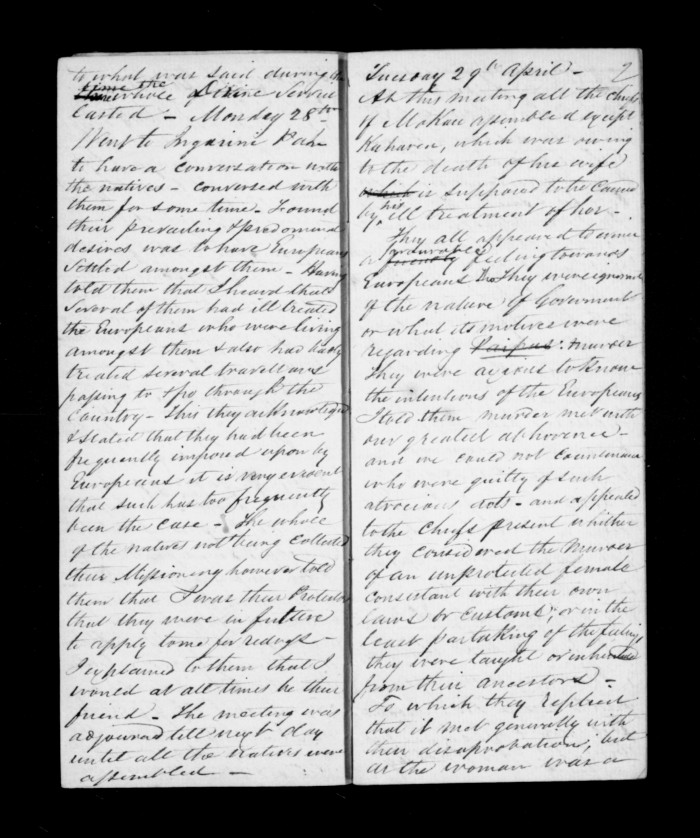 to what was said during the
~~time~~ the
~~time~~ whole of Divine Service
lasted – Monday 28th
Went to Ingarini Pah
to have a conversation with
the natives – conversed with
them for some time – Found
their prevailing & predominant
desires was to have Europeans
Settled amongst them – Having
told them that I heard that
Several of them had ill treated
the Europeans who were living
amongst them & also had badly
treated several travellers
passing to & fro through the
Country – This they acknowledged
& stated that they had been
frequently imposed upon by
Europeans it is very evident
that such has too frequently
been the case – The whole
of the natives not being collected
their Missionary however told
them that I was their Protector
that they were in future
to apply to me for redress –
I explained to them that I
would at all times be their
friend – The meeting was
adjourned till next day
until all the natives were
assembled –
2
Tuesday 29th April –
At this meeting all the chiefs
of Mokau assembled except
Kaharoa, which was owing
to the death of his wife
~~which~~ is supposed to be caused
by his ill treatment of her –
They all appeared to evince
a ~~friendly~~ favourable feeling towards
Europeans They were ignorant
of the nature of Goverment
or what its motives were
regarding ~~Paipas~~ : murder
They were axious to know
the intentions of the Europeans
I told them murder met with
our greatest abhorence –
and we could not countenance
who were guilty of such
atrocious acts – and appealed
to the Chiefs present whether
they considered the Murder
of an unprotected female
consistant with their own
laws or customs; or in the
least partaking of the feelings
they were taught or inherited
from their ancestors –
To which they replied
that it met generally with
their disaprobation; but
as the woman was a